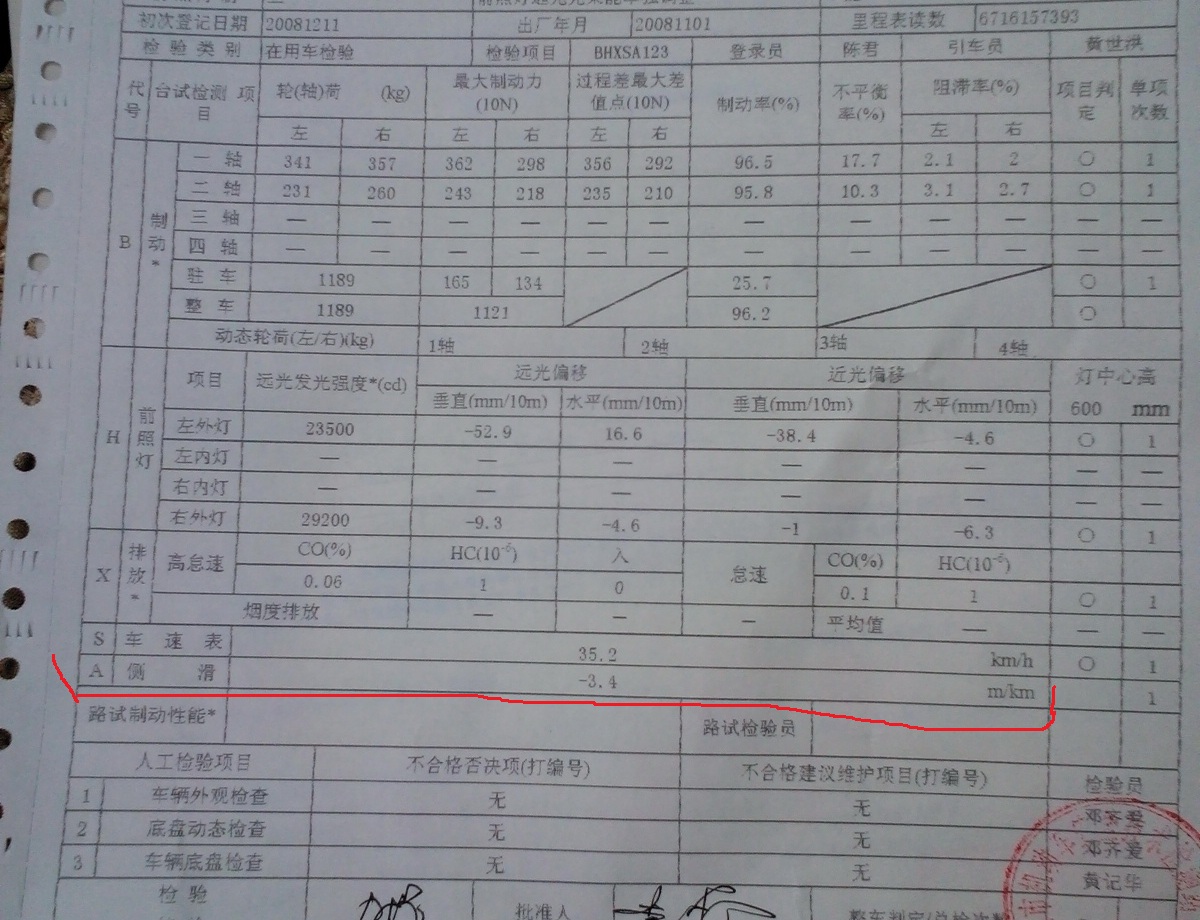 初次登记日期 20081211 出厂年月 20081101 里程表读数 6716157393
检验类别 在用车检验 检验项目 BHXSA123 登录员 陈君 引车员 黄世洪
代号 台试检测项目 轮(轴)荷 (kg) 最大制动力(10N) 过程差最大差值点(10N) 制动率(%) 不平衡率(%) 阻滞率(%) 项目判定 单项次数
左 右 左 右 左 右 左 右
B 制动*
一轴 341 357 362 298 356 292 96.5 17.7 2.1 2 ○ 1
二轴 231 260 243 218 235 210 95.8 10.3 3.1 2.7 ○ 1
三轴 — — — — — — — — — — — —
四轴 — — — — — — — — — — — —
驻车 1189 165 134 25.7 ○ 1
整车 1189 1121 96.2 ○
动态轮荷(左/右)(kg) 1轴 2轴 3轴 4轴
H 前照灯
项目 远光发光强度*(cd) 远光偏移 近光偏移 灯中心高
垂直(mm/10m) 水平(mm/10m) 垂直(mm/10m) 水平(mm/10m) 600 mm
左外灯 23500 -52.9 16.6 -38.4 -4.6 ○ 1
左内灯 — — — — — — —
右内灯 — — — — — — —
右外灯 29200 -9.3 -4.6 -1 -6.3 ○ 1
X 排放*
高怠速 CO(%) HC(10⁻⁶) 入 怠速 CO(%) HC(10⁻⁶)
0.06 1 0 0.1 1 ○ 1
烟度排放 — — — 平均值 — — —
S 车速表 35.2 km/h ○ 1
A 侧滑 -3.4 m/km 1
路试制动性能* 路试检验员
人工检验项目 不合格否决项(打编号) 不合格建议维护项目(打编号) 检验员
1 车辆外观检查 无 无 邓齐爱
2 底盘动态检查 无 无 邓齐爱
3 车辆底盘检查 无 无 黄记华
检验 批准人 整车判定/总检次数